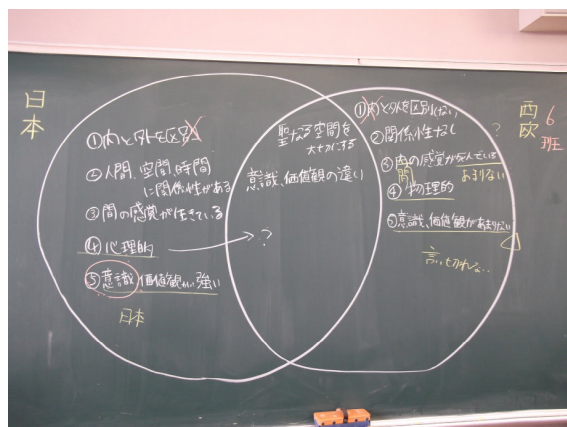 日本
①内と外を区別
②人間、空間、時間
に関係性がある
③間の感覚が生きている
④心理的
⑤意識、価値観が強い
日本
聖なる空間を
大切にする
意識、価値観の違い
?
①内と外を区別しない
②関係性なし
?
③内の感覚が死んでいる
間
あまりない
④物理的
⑤意識、価値観があまりない
言い切れる…
西欧
6
班